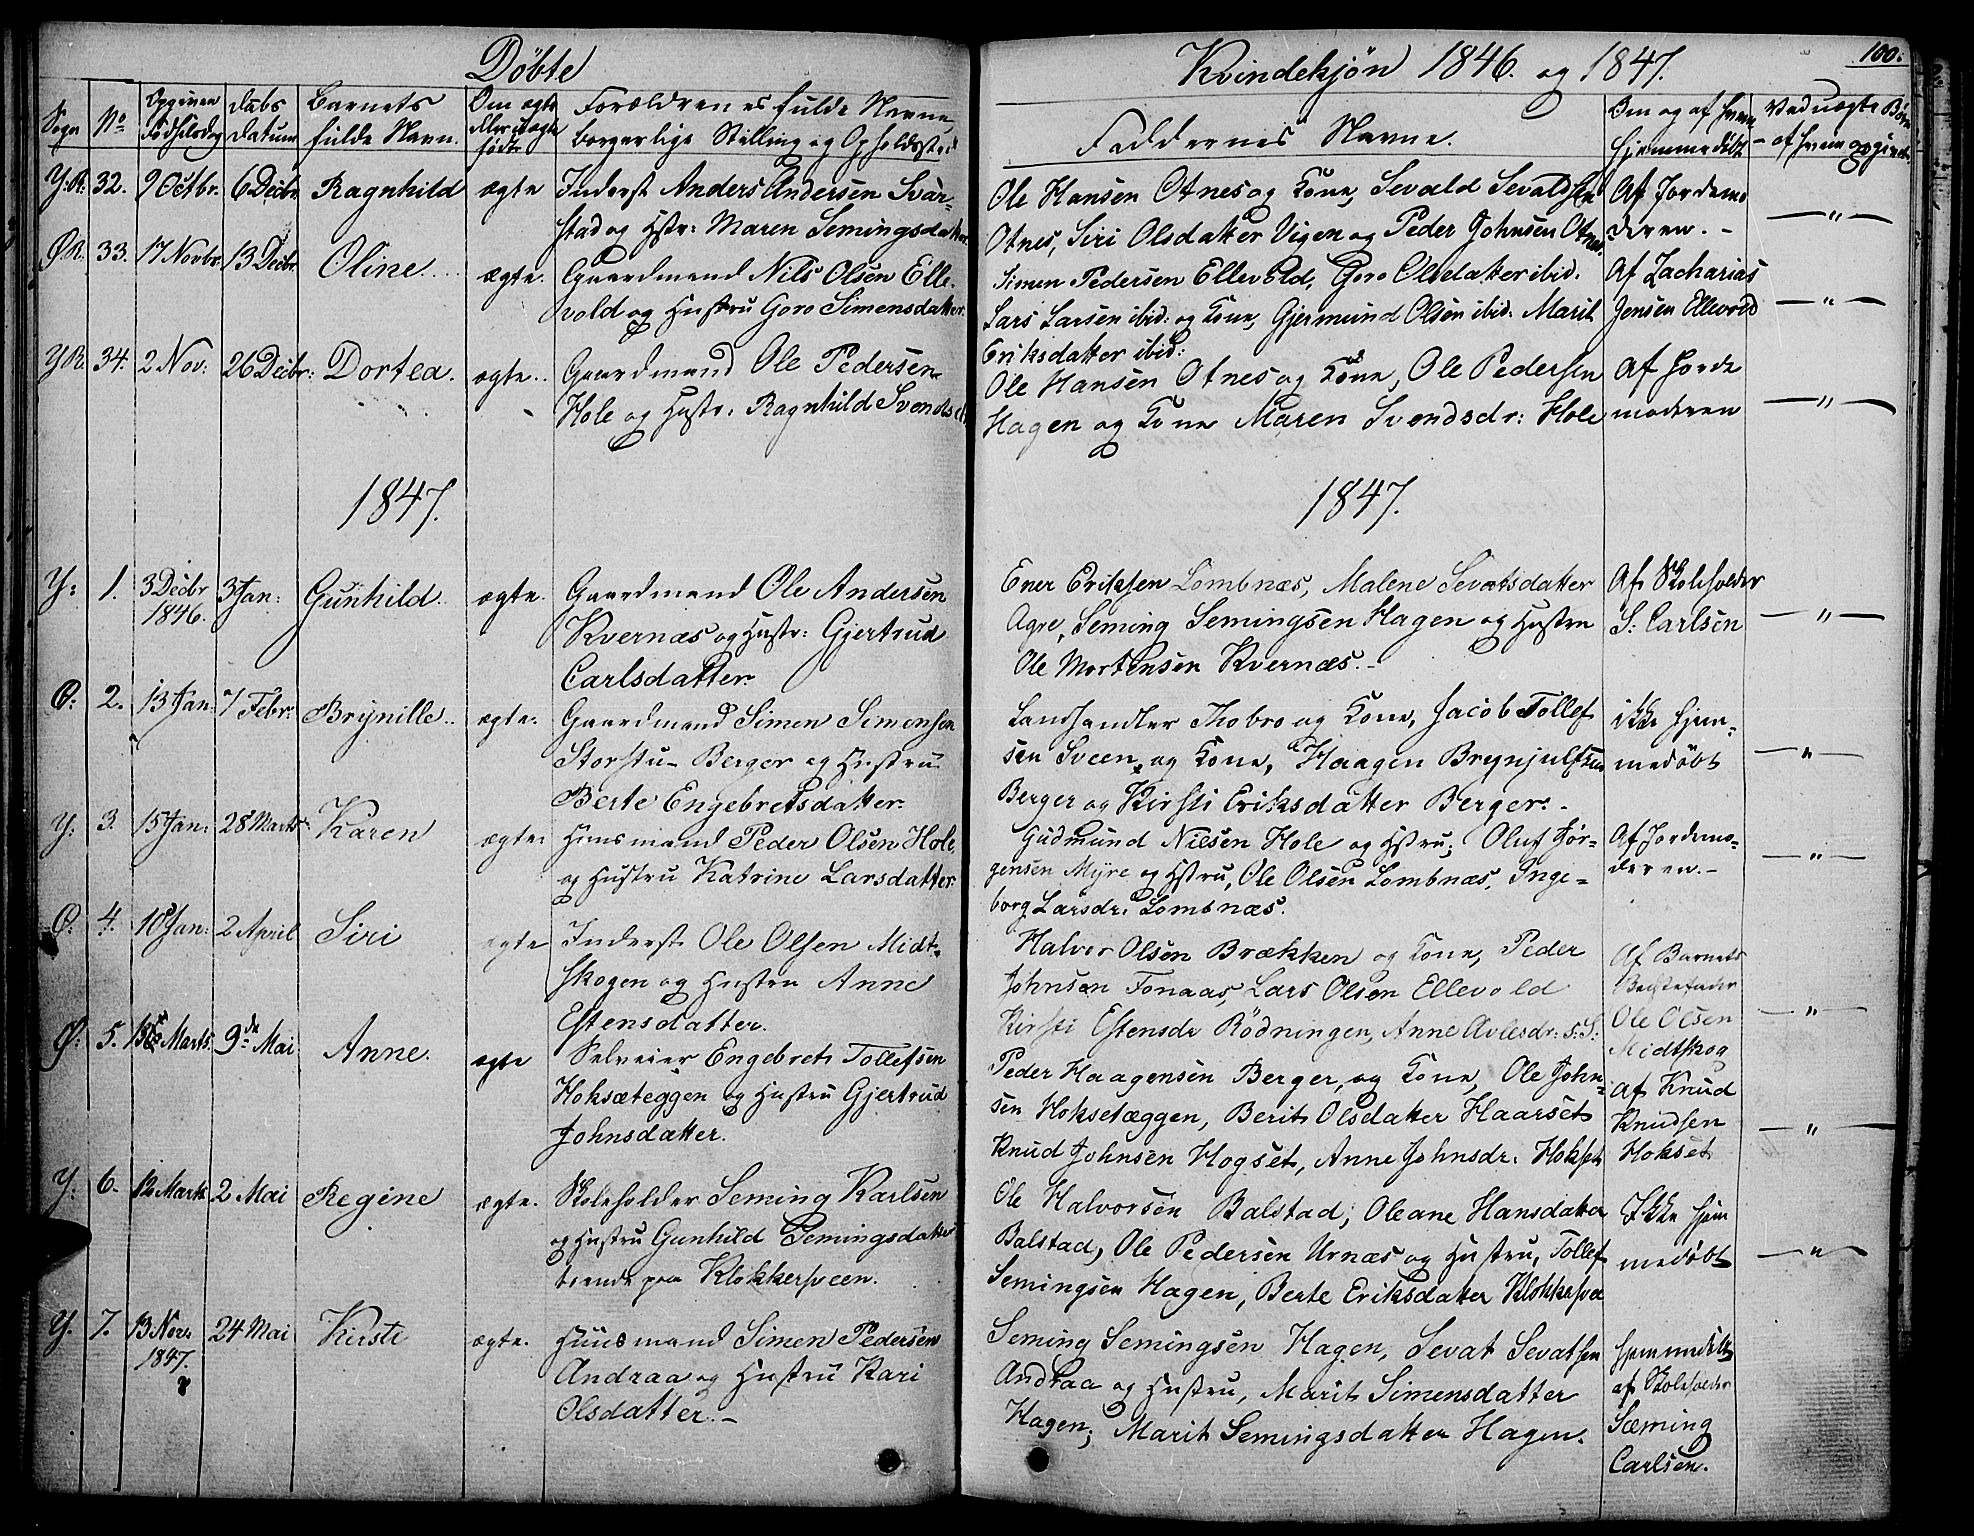 Döbte
Sogn
No
Opgiven Födselsdag
Daabs Datum
Barnets fulde Navn.
Om ægte eller uægte födt
Forældrenes fulde Navne borgerlige Stilling og Opholdssted
Y.R. 32. 9 Octbr. 6 Decbr. Ragnhild ægte Inderst Anders Andersen Svar-
stad og Hstr: Maren Semingsdatter
ØR. 33. 17 Novbr. 13 Decbr. Oline. ægte. Gaardmand Nils Olsen Elle-
vold og Hustru Goro Simensdatter.
YR. 34. 2 Nov: 26 Decbr: Dortea. ægte. Gaardmand Ole Pedersen
Hole og Hustr: Ragnhild Svendsd
1847.
Y: 1. 3 Decbr 1846. 3 Jan: Gunhild. ægte. Gaardmand Ole Andersen
Kvernæs og Hustr: Gjertrud
Carlsdatter.
Ø: 2. 13 Jan: 7 Febr: Brynille. ægte. Gaardmand Simen Simensen
Storstu- Berger og Hustru
Berte Engebretsdatter.
Y: 3. 15 Jan: 28 Marts Karen ægte Huusmand Peder Olsen Hole
og Hustru Katrine Larsdatter.
Ø: 4. 10 Jan: 2 April Siri ægte Inderst Ole Olsen Midt-
skogen og Hustru Anne
Estensdatter.
Ø: 5. Marts. 9de Mai Anne. ægte Selveier Engebret Tollefsen
Hoksæteggen og Hustru Gjertrud
Johnsdatter.
Y: 6. 12 Marts 2 Mai Regine ægte. Skoleholder Seming Karlsen
og Hustru Gunhild Semingsdatter
boende paa Klokkersveen.
Y. 7. 13 Novr 1847. 24 Mai Kirsti ægte. Huusmand Simen Pedersen
Andraa og Hustru Kari
Olsdatter.-
Kvindekjøn 1846. og 1847.
100.
Faddernes Navne.
Om og af hvem hjemmedöbt
Ved uægte Börn
- af hvem opgivet
Ole Hansen Otnes og Kone, Sevald Sevaldsen
Otnes, Siri Olsdatter Vigen og Peder Johnsen Otnes.
Af Jordemo
deren. -
- " -
Simen Pedersen Ellevold, Goro Olsdatter ibid.
Lars Larsen ibid: og Kone, Gjermund Olsen ibid. Marit
Eriksdatter ibid:
Af Zacharias
Jensen Ellevold
- " -
Ole Hansen Otnes og Kone, Ole Pedersen
Hagen og Kone Maren Svendsdr: Hole
Af Jorde
moderen
- " -
1847.
Ener Eriksen Lombnæs, Malene Sevatsdatter
Agre, Seming Semingsen Hagen og Hustru
Ole Mortensen Kvernæs.-
Af Skoleholder
S: Carlsen
- " -
Landhandler Thobro og Kone, Jacob Tollef
sen Sveen og Kone, Haagen Brynjulfsen
Berger og Kirsti Eriksdatter Berger. -
ikke hjem-
medöbt
- " -
Gudmund Nilsen Hole og Hstru; Oluf Jör-
gensen Myre og Hstru, Ole Olsen Lombnæs, Inge-
borg Larsdr. Lombnæs.
Af Jordemo-
deren.-
- " -
Halvor Olsen Brækken og Kone, Peder
Johnsen Fonaas, Lars Olsen Ellevold
Kirsti Estensdr Rödningen, Anne
Af Barnets
Bedstefader
Ole Olsen
Midtskog
- " -
Peder Haagensen Berger, og Kone, Ole John-
sen Hoksetæggen, Berit Olsdatter Haarset
Knud Johnsen Hogset, Anne Johnsdr. Hokset
Af Knud
Knudsen
Hokset
- " -
Ole Halvorsen Balstad, Oleane Hansdatter
Balstad, Ole Pedersen Urnæs og Hustru, Tollef
Semingsen Hagen, Berte Eriksdatter
Ikke hjem
medöbt
- " -
Seming Semingsen Hagen, Sevat Sevatsen
Andraa og Hustru, Marit Simensdatter
Hagen; Marit Semingsdatter Hagen.
Hjemmedöbt
af Skoleholder
Sæming
Carlsen.